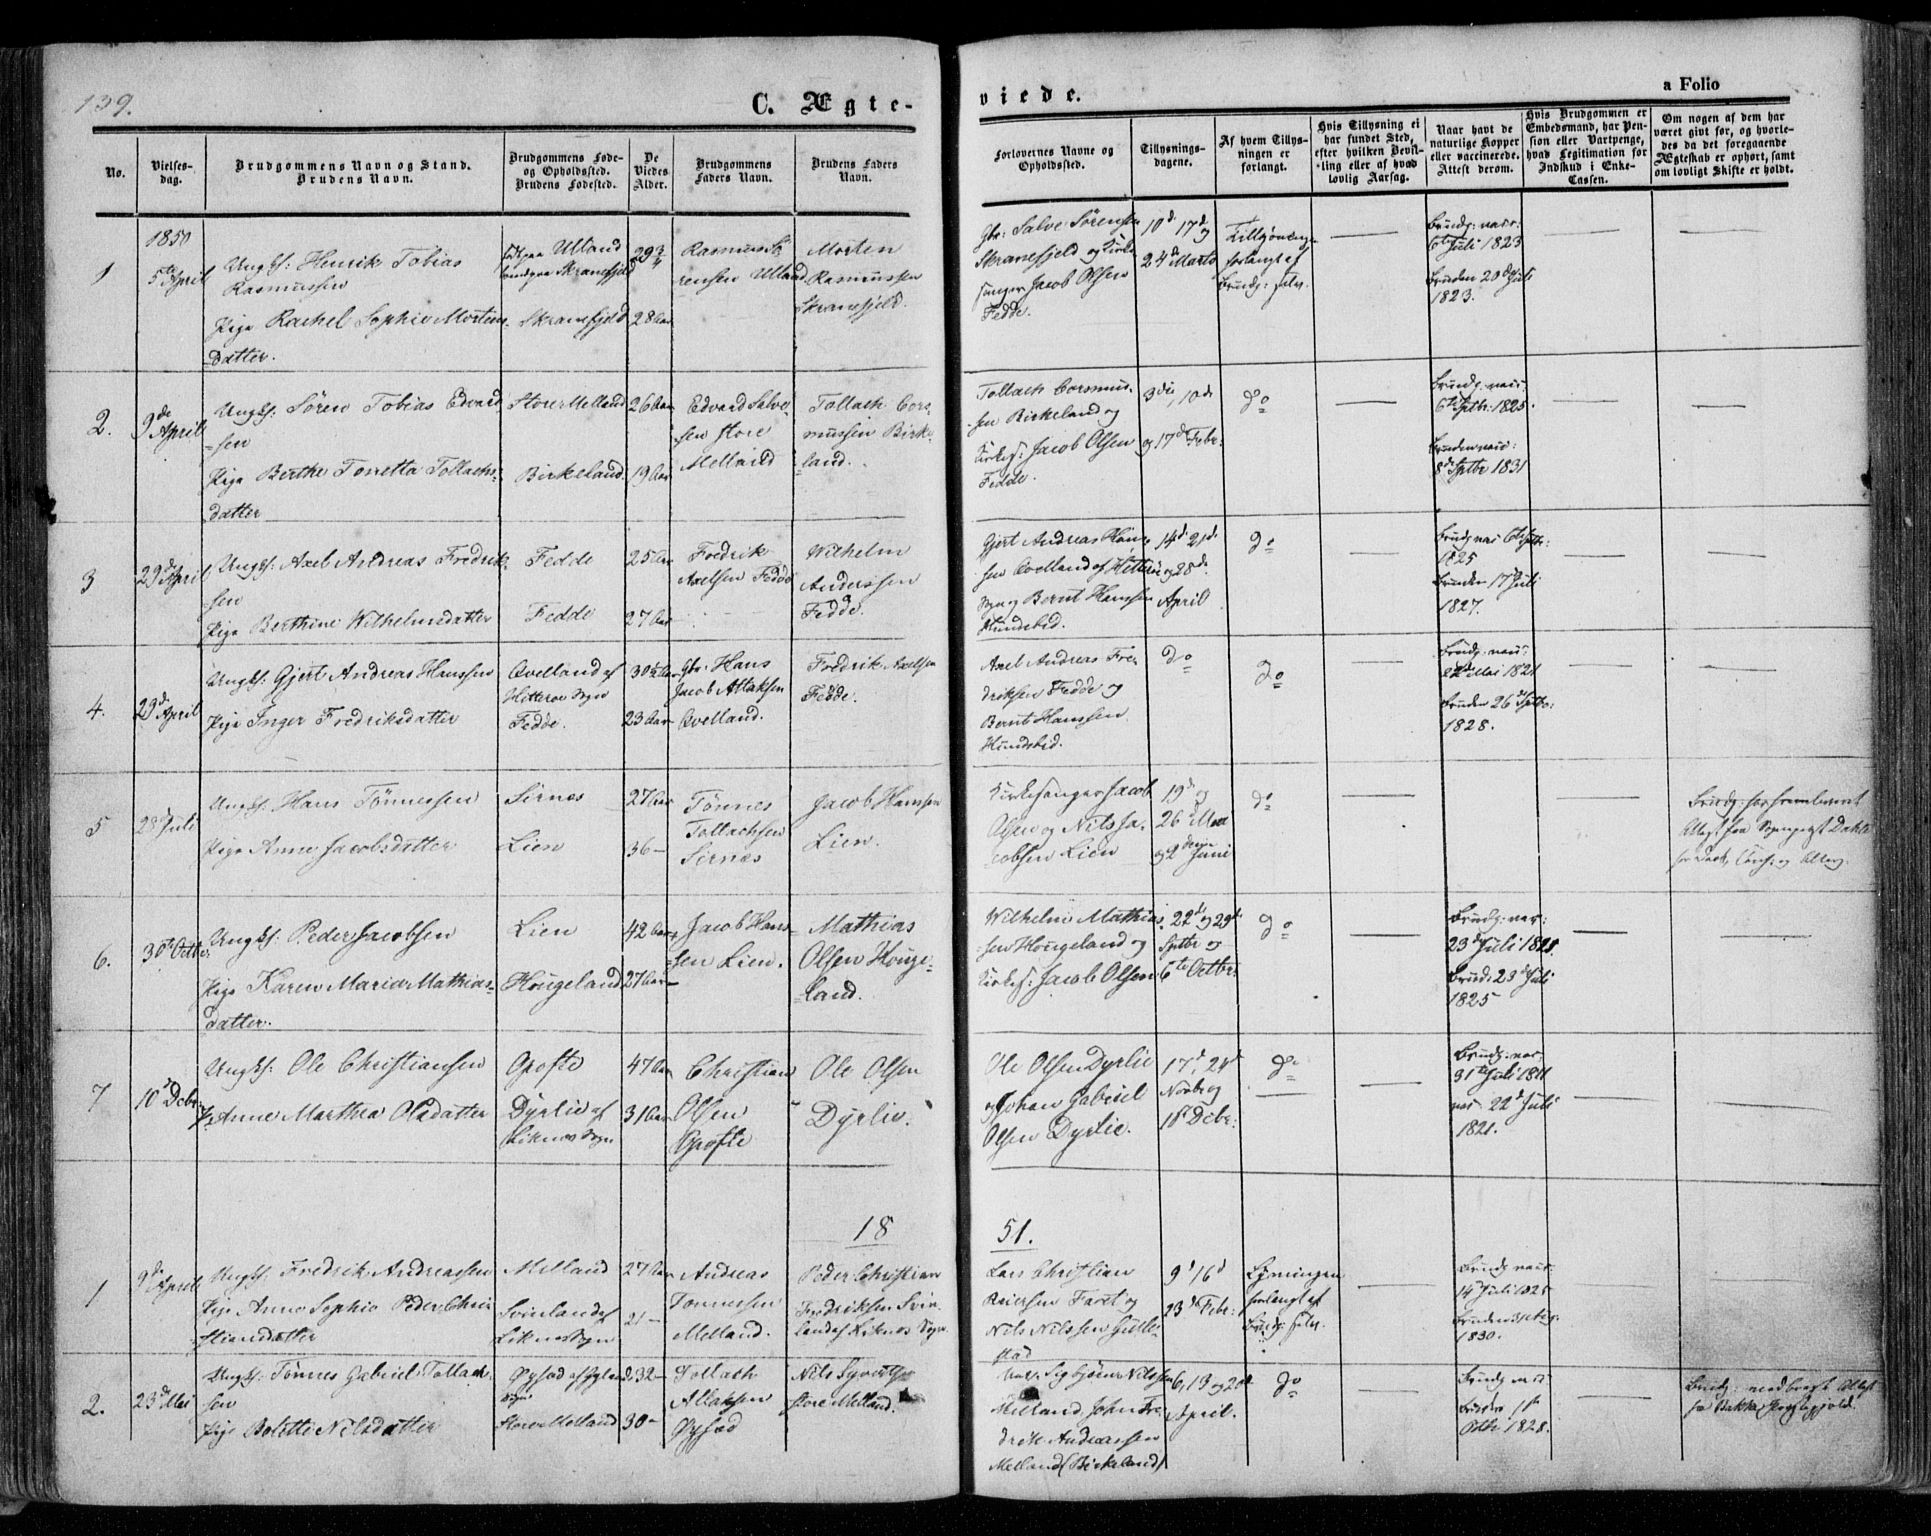 139.
C. Ægte-
viede.
a Folio
No.
Vielses-
dag.
Brudgommens Navn og Stand.
Brudens Navn.
Brudgommens Føde-
og Opholdssted.
Brudens Fødested.
De
Viedes
Alder.
Brudgommens
Faders Navn.
Brudens Faders
Navn.
Forlovernes Navne og
Opholdssted.
Tillysnings-
dagene.
Af hvem Tillys-
ningen er
forlangt.
Hvis Tillysning ei
har fundet Sted,
efter hvilken Bevil-
ling eller af hvad
lovlig Aarsag.
Naar havt de
naturlige Kopper
eller vaccinerede.
Attest derom.
Hvis Brudgommen er
Embedsmand, har Pen-
sion eller Vartpenge,
hvad Legitimation for
Indskud i Enke-
Cassen.
Om nogen af dem har
været givt før, og hvorle-
des da det foregaaende
Ægteskab er ophørt, samt
om lovligt Skifte er holdt.
1850
1
5te April
Ungk: Henrik Tobias
Rasmussen
Pige Rachel Sophie Mortens-
datter.
Skranefjeld
28 Aar
Rasmus Sö-
rensen Utland
Morten
Rasmussen
Skranefjeld.
Gbr: Salve Sørensen
Skranefjeld og Kirke-
sanger Jacob Olsen
Fedde.
10d 17d og
24d Marts
forlangt af
Brudg: selv.
Brudg: vacc:
6te Juli 1823
Bruden 20de Juli
1823.
2.
9de April
Ungk: Sören Tobias Edvard
=sen
Pige Berthe Torretta Tollachs-
datter
Store Melland
Birkeland
26 Aar
19 Aar
Edvard Salve-
sen store
Melland
Tollach Cors-
mussen Birke-
=land.
Tollach Corsmus-
=sen Birkeland og
Kirkes: Jacob Olsen
Fedde.
3die, 10de
og 17de Febr:
do
Brudg: vacc:
6te Sptbr: 1825.
Bruden vacc:
8de Sptbr 1831
3
29de April
Ungk: Axel Andreas Fredrik-
sen
Pige Berthine Wilhelmsdatter
Fedde
Fedde
25 Aar
27 Aar
Fredrik
Axelsen Fedde
Wilhelm
Anderssen
Fedde.
Gjert Andreas Hans-
sen Qvelland af Hitterø
Sogn og Bernt Hanssen
Hundsbed.
14d 21de
og 28de
April
do
1825
Bruden 17de Juli
1827.
4.
29de April
Ungk: Gjert Andreas Hanssen
Pige Inger Fredriksdatter
Qvelland af
Hitterøe Sogn
Fedde.
23 Aar
Gbr: Hans
Jacob Atlaksen
Qvelland.
Fredrik Axelsen
Fedde.
Axel Andreas Fre-
driksen Fedde og
Bernt Hanssen
Hundsbed.
do
do
Brudg: vacc:
22de Mai 1821
Bruden 26de Sptbr:
1828.
5
28de Juli
Ungk: Hans Tønnessen
Pige Anne Jacobsdatter
Sirnes
Lien
27 Aar
36 —
Tønnes
Tollachsen
Sirnes
Jacob Hanssen
Lien.
Kirkesanger Jacob
Olsen og Nils Ja-
cobsen Lien
19d og
26de Mai
og 2den Juni
do
Brudg: har fremleveret
Attest fra Sogneprest Dahle
6.
30te Octbr:
Ungk: Peder Jacobsen
Pige Karen Maria Mathias-
datter.
Lien
Hougeland
42 Aar
27 Aar
Jacob Hans-
=sen Lien.
Mathias
Olsen Houge-
=land.
Wilhelm Mathias-
sen Hougeland og
Kirkes: Jacob Olsen
22de og 29de
Sptbr og
6te Octbr:
do
Brudg: vac:
23de Juli 1828
Brud: 23de Juli
1825
7
10de Debr:
Ungk: Ole Christiansen
P. Anne Marthea Olsdatter
Gpofte
Dyrlie af
Liknes Sogn
47 Aar
31 Aar
Christian
Olsen
Gpofte
Ole Olsen
Dyrlie.
Ole Olsen Dyrlie
og Johan Gabriel
Olsen Dyrlie.
17d, 24d
Novbr og
1st Debr:
do
Brudg: vac:
31te Juli 1811
vac 22de Juli
1821.
18
51.
1
9de April
Ungk: Fredrik Andreassen
Pige Anne Sophie Peder Chri-
stiansdatter
Melland
Svinland af
Liknes Sogn
27 Aar
21 —
Andreas
Tønnessen
Melland.
Peder Christian
Fredriksen Svin-
land af Liknes Sogn.
Lars Christian
Reiersen Faret og
Nils Nilssen Gulle-
stad
9d 16d
23de Febr:
Lysningen
forlangt af
Brudg: selv.
Brudg: vacc:
14de Juli 1825
1830.
2.
23de Mai
Ungk: Tønnes Gabriel Tollach-
sen
Pige Bolette Nilsdatter
Sogn
Store Melland
32 —
30 —
Tollach
Atlaksen
Nils Syvertsen
store Melland.
Melland, John Fre-
drik Andreassen
Melland (Birkeland)
6, 13 og 20de
April.
do
Bruden 1st
Octbr: 1828.
Brudg: medbragt Attest